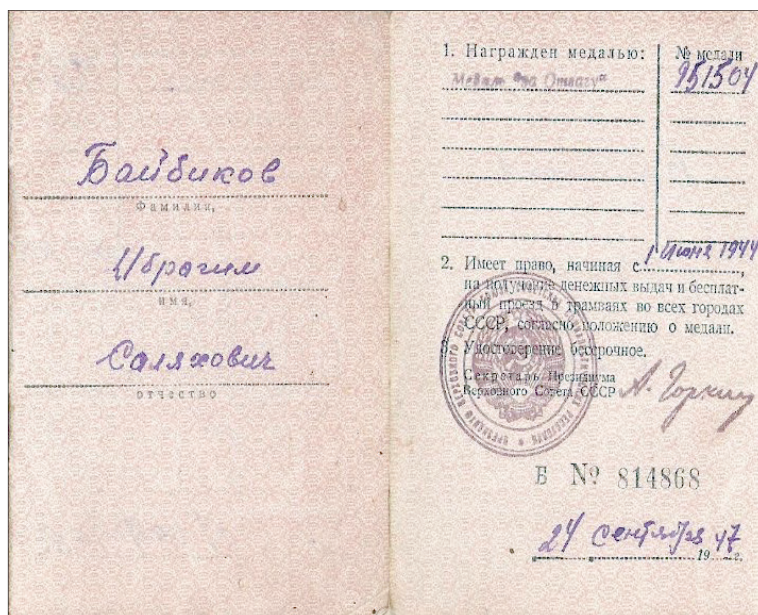 Байбиков
Фамилия,
Ибрагим
имя,
Саляхович
отчество
1. Награжден медалью: № медали
Медаль "за Отвагу" 951504
2. Имеет право, начиная с 1 июня 1944,
на получение денежных выдач и бесплат-
ный проезд в трамваях во всех городах
СССР, согласно положению о медали.
3. Удостоверение бессрочное.
Секретарь Президиума
Верховного Совета СССР А. Горкин
Б № 814868
24 сентября 1947 г.